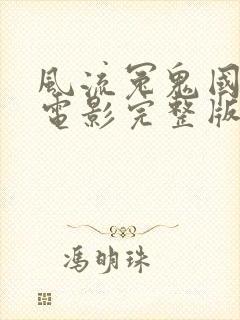 風流冤鬼國
電影完整版
馮明珠